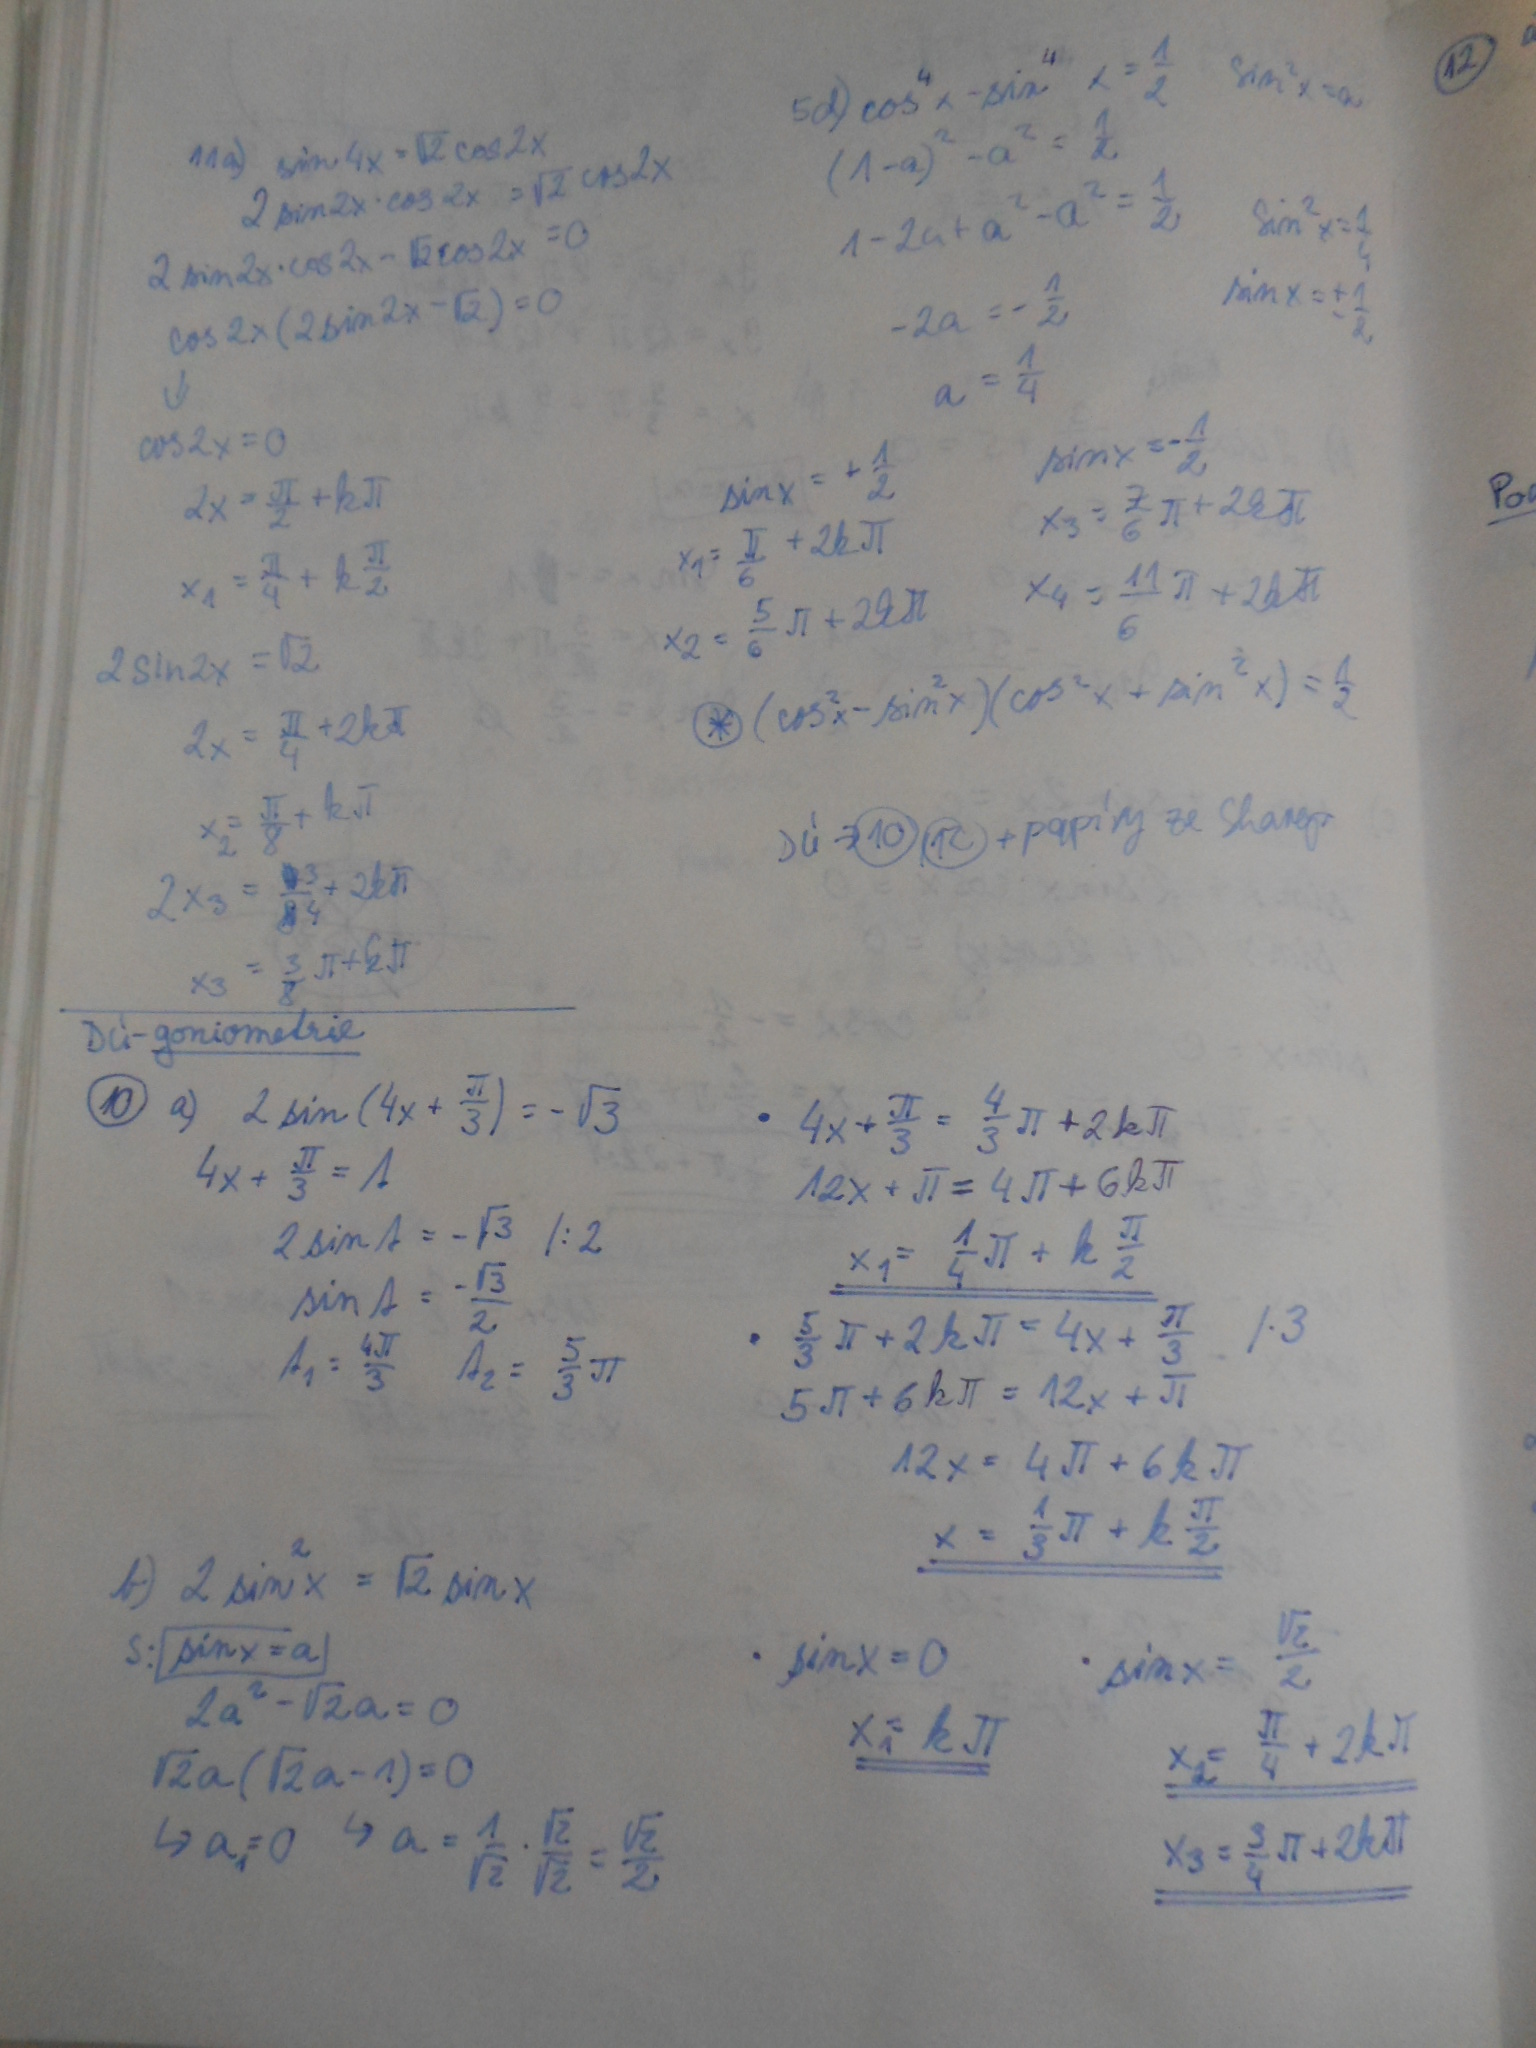 11a) sin4x = √2 cos2x
2sin2x·cos2x = √2 cos2x
2sin2x·cos2x - √2cos2x = 0
cos2x(2sin2x-√2) = 0
↓
cos2x = 0
2x = π/2 + kπ
x₁ = π/4 + k π/2
2sin2x = √2
2x = π/4 + 2kπ
x₂ = π/8 + kπ
2x₃ = 3/4 + 2kπ
x₃ = 3/8 π + kπ
5d) cos⁴x - sin⁴ x = 1/2 sin²x = a
(1-a)² - a² = 1/2
1 - 2a + a² - a² = 1/2
sin²x = 1/4
-2a = -1/2
sinx = ±1/2
a = 1/4
sinx = +1/2
x₁ = π/6 + 2kπ
x₂ = 5/6 π + 2kπ
sinx = -1/2
x₃ = 7/6 π + 2kπ
x₄ = 11/6 π + 2kπ
* (cos²x - sin²x)(cos²x + sin²x) = 1/2
DÚ → 10, 12 + papíry ze
DÚ - goniometrie
10 a) 2 sin(4x + π/3) = -√3
4x + π/3 = t
2 sin t = -√3 /:2
sin t = -√3/2
t₁ = 4π/3 t₂ = 5/3 π
• 4x + π/3 = 4/3 π + 2kπ
12x + π = 4π + 6kπ
x₁ = 1/4 π + k π/2
• 5/3 π + 2kπ = 4x + π/3 /·3
5π + 6kπ = 12x + π
12x = 4π + 6kπ
x = 1/3 π + k π/2
b) 2 sin²x = √2 sinx
S: sinx = a
2a² - √2a = 0
√2a(√2a - 1) = 0
↳ a₁ = 0 ↳ a = 1/√2 · √2/√2 = √2/2
• sinx = 0
x₁ = kπ
• sinx = √2/2
x₂ = π/4 + 2kπ
x₃ = 3/4 π + 2kπ
12